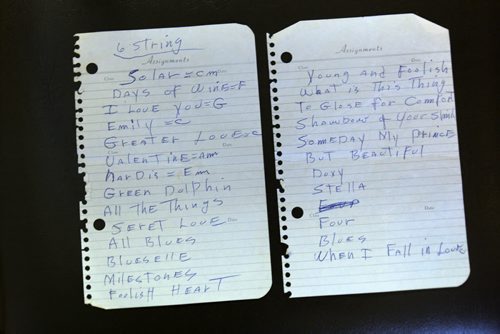 6 String
Assignments
Solar=cm
Days of Wine=F
I Love You=G
Emily=C
Greater Love=c
Valentine=am
NarDis=Em
Green Dolphin
All The Things
Seret Love
All Blues
Blueselle
Milestones
Foolish Heart
Assignments
Young and Foolish
What is This Thing
To Close for Comfort
Showbow &
Someday My Prince
But Beautiful
Doxy
Stella
Four
Blues
When I Fall in Love